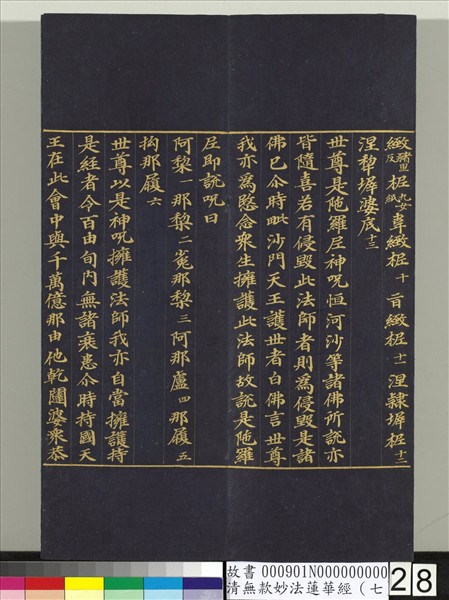 緻猪履反柅女氏反韋緻柅十旨緻柅十一涅隸墀柅十二
涅犂墀婆底十三
世尊是陁羅尼神呪恒河沙等諸佛所說亦
皆隨喜若有侵毀此法師者則為侵毀是諸
佛已尒時毗沙門天王護世者白佛言世尊
我亦為愍念眾生擁護此法師故說是陁羅
尼即說呪曰
阿梨一那梨二㝹那梨三阿那盧四那履五
拘那履六
世尊以是神呪擁護法師我亦自當擁護持
是經者令百由旬內無諸衰患尒時持國天
王在此會中與千萬億那由他乾闥婆眾恭
故書 000901N000000000
清無款妙法蓮華經（七
28